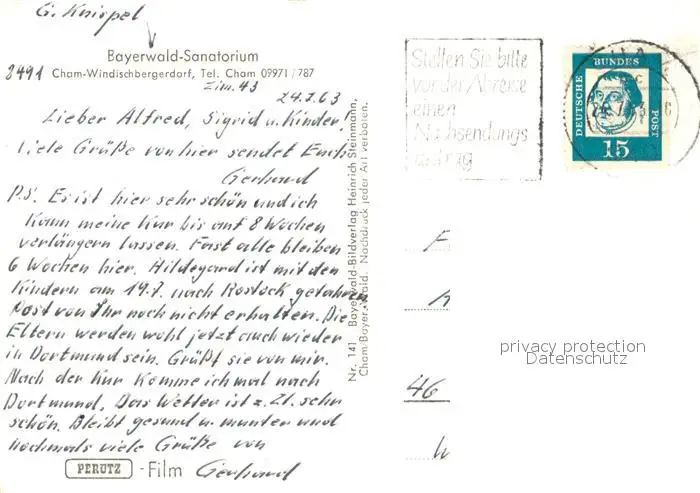 G. Knispel
Bayerwald-Sanatorium
8491 Cham-Windischbergerdorf, Tel. Cham 09971/787
Zim. 43
24.7.63
Lieber Alfred, Sigrid u. Kinder!
Viele Grüße von hier sendet Euch
Gerhard
P.S. Es ist hier sehr schön und ich
kann meine Kur bis auf 8 Wochen
verlängern lassen. Fast alle bleiben
6 Wochen hier. Hildegard ist mit den
Kindern am 19.7. nach Rostock gefahren
Post von Ihr noch nicht erhalten. Die
Eltern werden wohl jetzt auch wieder
in Dortmund sein. Grüßt sie von mir.
Nach der Kur komme ich mal nach
Dortmund. Das Wetter ist z. Zt. sehr
schön. Bleibt gesund u. munter und
nochmals viele Grüße von
Gerhard
PERUTZ - Film
Nr. 141 Bayerwald-Bildverlag Heinrich Steinmann,
Cham/Bayer. Wald. Nachdruck jeder Art verboten.
Stellen Sie bitte
vor der Abreise
einen
Nachsendungs
antrag
DEUTSCHE
BUNDES
POST
15
46
privacy protection
Datenschutz